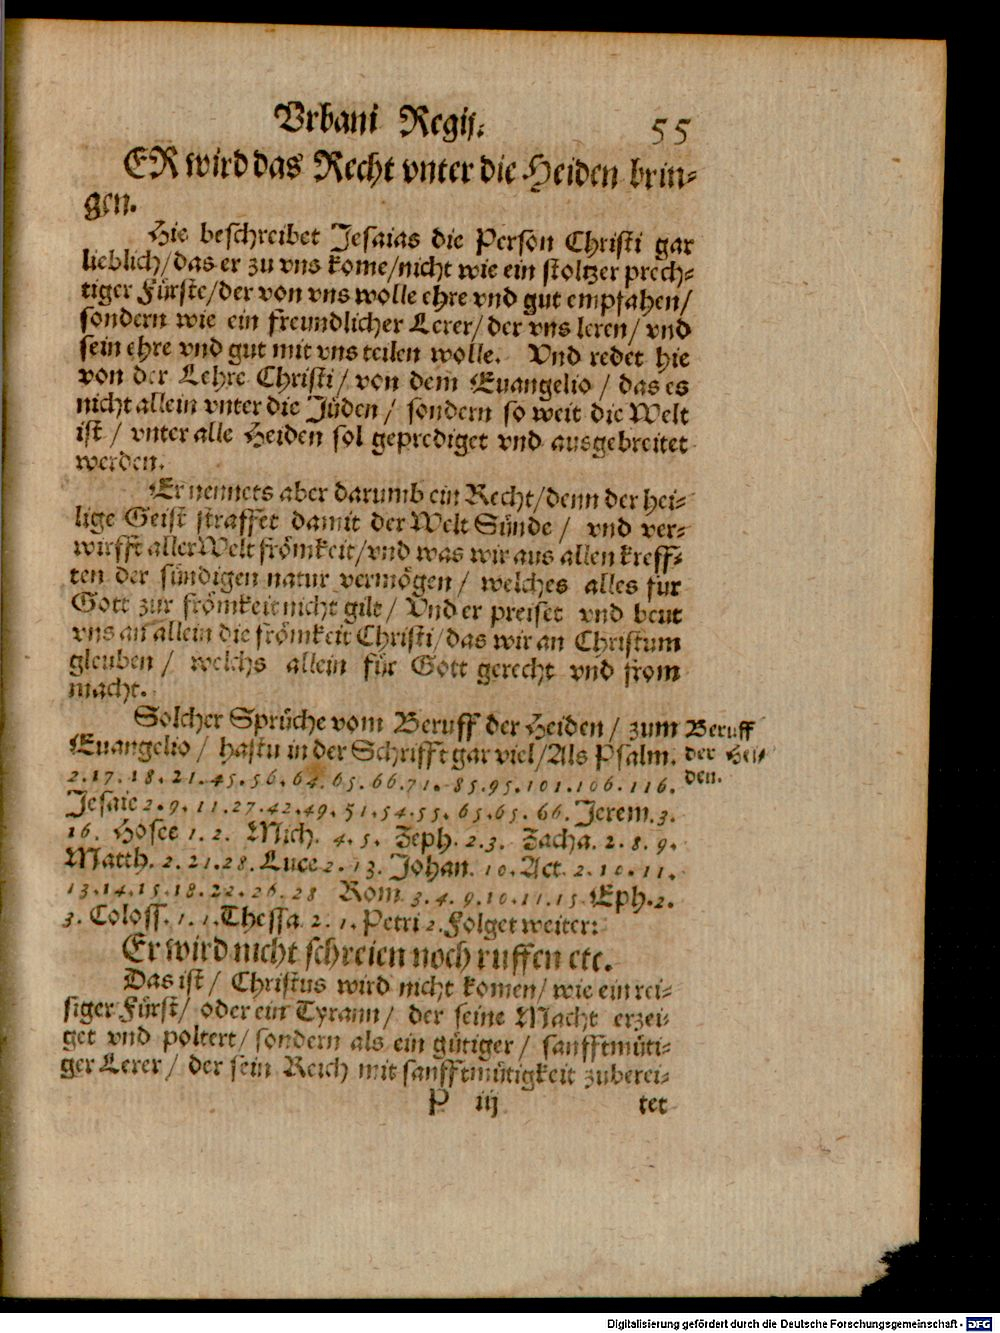 Vrbani Regij. 55
ER wird das Recht vnter die Heiden brin⸗
gen.
Hie beschreibet Jesaias die Person Christi gar
lieblich/das er zu vns kome/nicht wie ein stoltzer prech⸗
tiger Fürste/der von vns wolle ehre vnd gut empfahen/
sondern wie ein freundlicher Lerer/der vns leren/vnd
sein ehre vnd gut mit vns teilen wolle. Vnd redet hie
von der Lehre Christi/von dem Euangelio/das es
nicht allein vnter die Jüden/sondern so weit die Welt
ist/vnter alle Heiden sol geprediget vnd ausgebreitet
werden.
Er nennets aber darumb ein Recht/denn der hei⸗
lige Geist straffet damit der Welt Sünde/vnd ver⸗
wirfft aller Welt frömkeit/vnd was wir aus allen kreff⸗
ten der sündigen natur vermögen/welches alles für
Gott zur frömkeit nicht gilt/Vnd er preiset vnd beut
vns an allein die frömkeit Christi/das wir an Christum
gleuben/welchs allein für Gott gerecht vnd from
macht.
Solcher Sprüche vom Beruff der Heiden/zum
Euangelio/hastu in der Schrifft gar viel/Als Psalm.
2.17.18.21.45.56.64.65.66.71.85.95.101.106.116.
Jesaie 2.9.11.27.42.49.51.54.55.65.65.66. Jerem.3.
16. Hosee 1.2. Mich. 4.5. Zeph.2.3. Zacha.2.8.9.
Matth.2.21.28. Luce 2.13. Johan.10. Act.2.10.11.
13.14.15.18.22.26.28 Rom.3.4.9.10.11.15. Eph.2.
3. Coloss.1.1. Thessa.2.1. Petri 2. Folget weiter:
Er wird nicht schreien noch ruffen etc.
Das ist/Christus wird nicht komen/wie ein rei⸗
siger Fürst/oder ein Tyrann/der seine Macht erzei⸗
get vnd poltert/sondern als ein gütiger/sanfftmüti⸗
ger Lerer/der sein Reich mit sanfftmütigkeit zuberei⸗
P iij tet
Beruff
der Hei⸗
den.
Digitalisierung gefördert durch die Deutsche Forschungsgemeinschaft - DFG